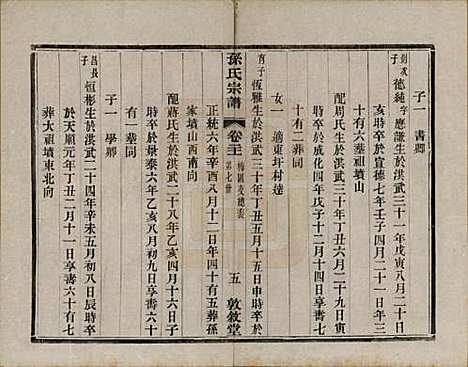 子一 書卿
劍次子 德純字應謙生於洪武三十一年戊寅八月二十日
亥時卒於宣德七年壬子四月二十一日享
壽三十有六葬六老墳山
配周氏生於洪武三十年丁丑六月二十九日寅
時卒於成化四年戊子十二月二十四日享壽七
十有二葬同
女一 適東圩村逵
育子 恆雅生於洪武三十年丁丑五月十五日申時卒於
孫氏宗譜 卷三 第七世 五 敦敘堂
正統六年辛酉八月十二日享壽四十有五葬孫
家墳山西南向
配蔣氏生於洪武二十八年乙亥四月十六日子
時卒於景泰六年乙亥八月初九日享壽六十
有一墓同
子一 學卿
昌長子 恆彬生於洪武二十四年辛未五月初八日辰時卒
於天順元年丁丑二月十一日享壽六十有七
葬大祖墳東北向